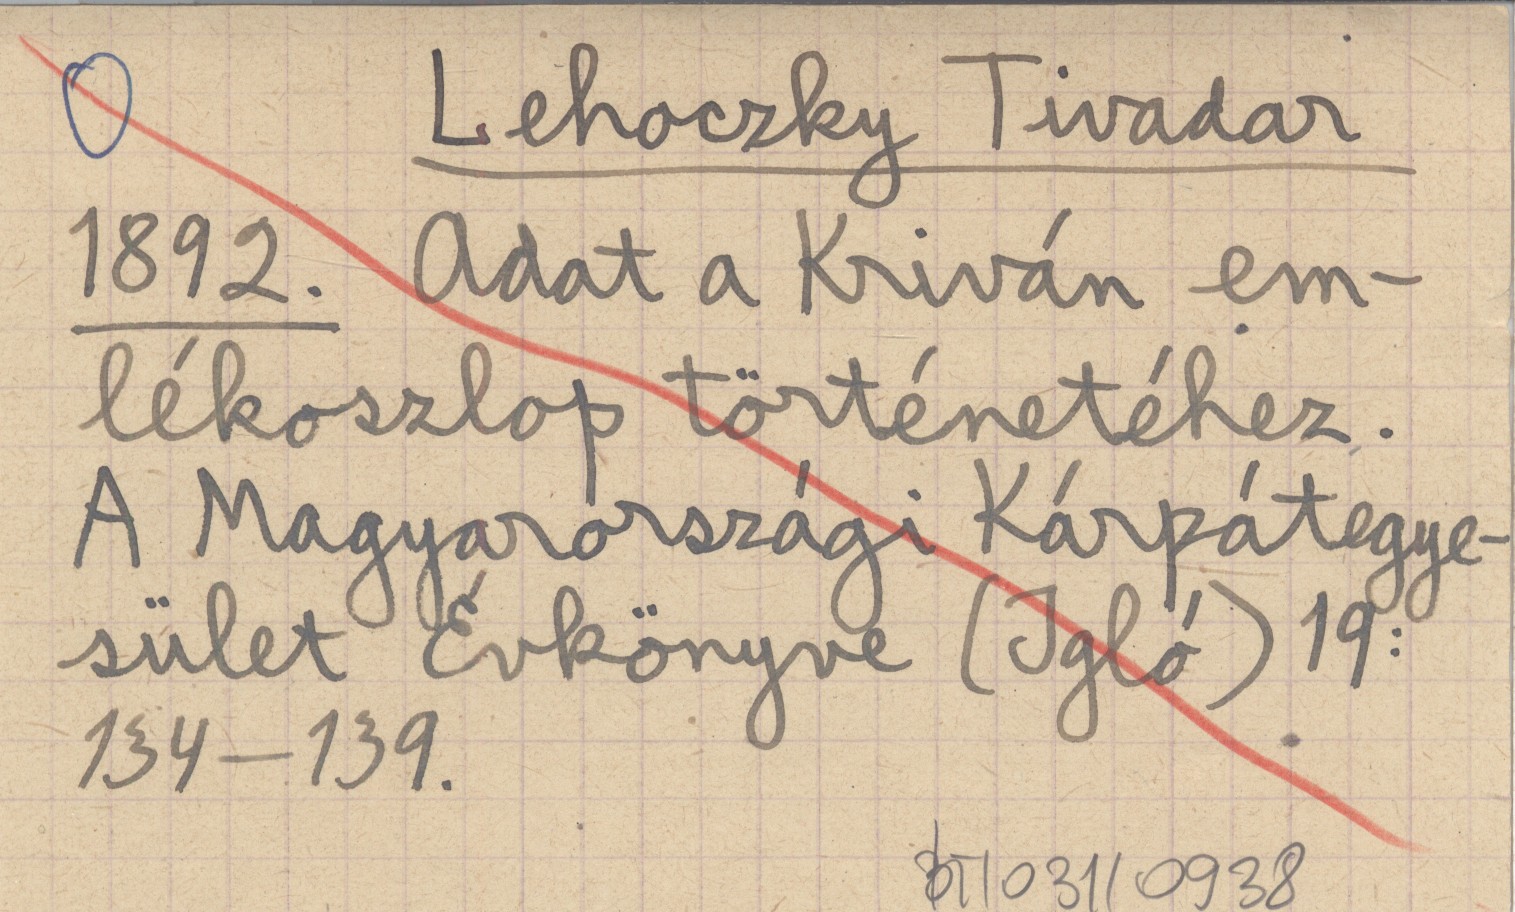 Lehoczky Tivadar
1892. Adat a Kriván em-
lékoszlop történetéhez.
A Magyarországi Kárpátegye-
sület Évkönyve (Igló) 19:
134–139.
031/0938